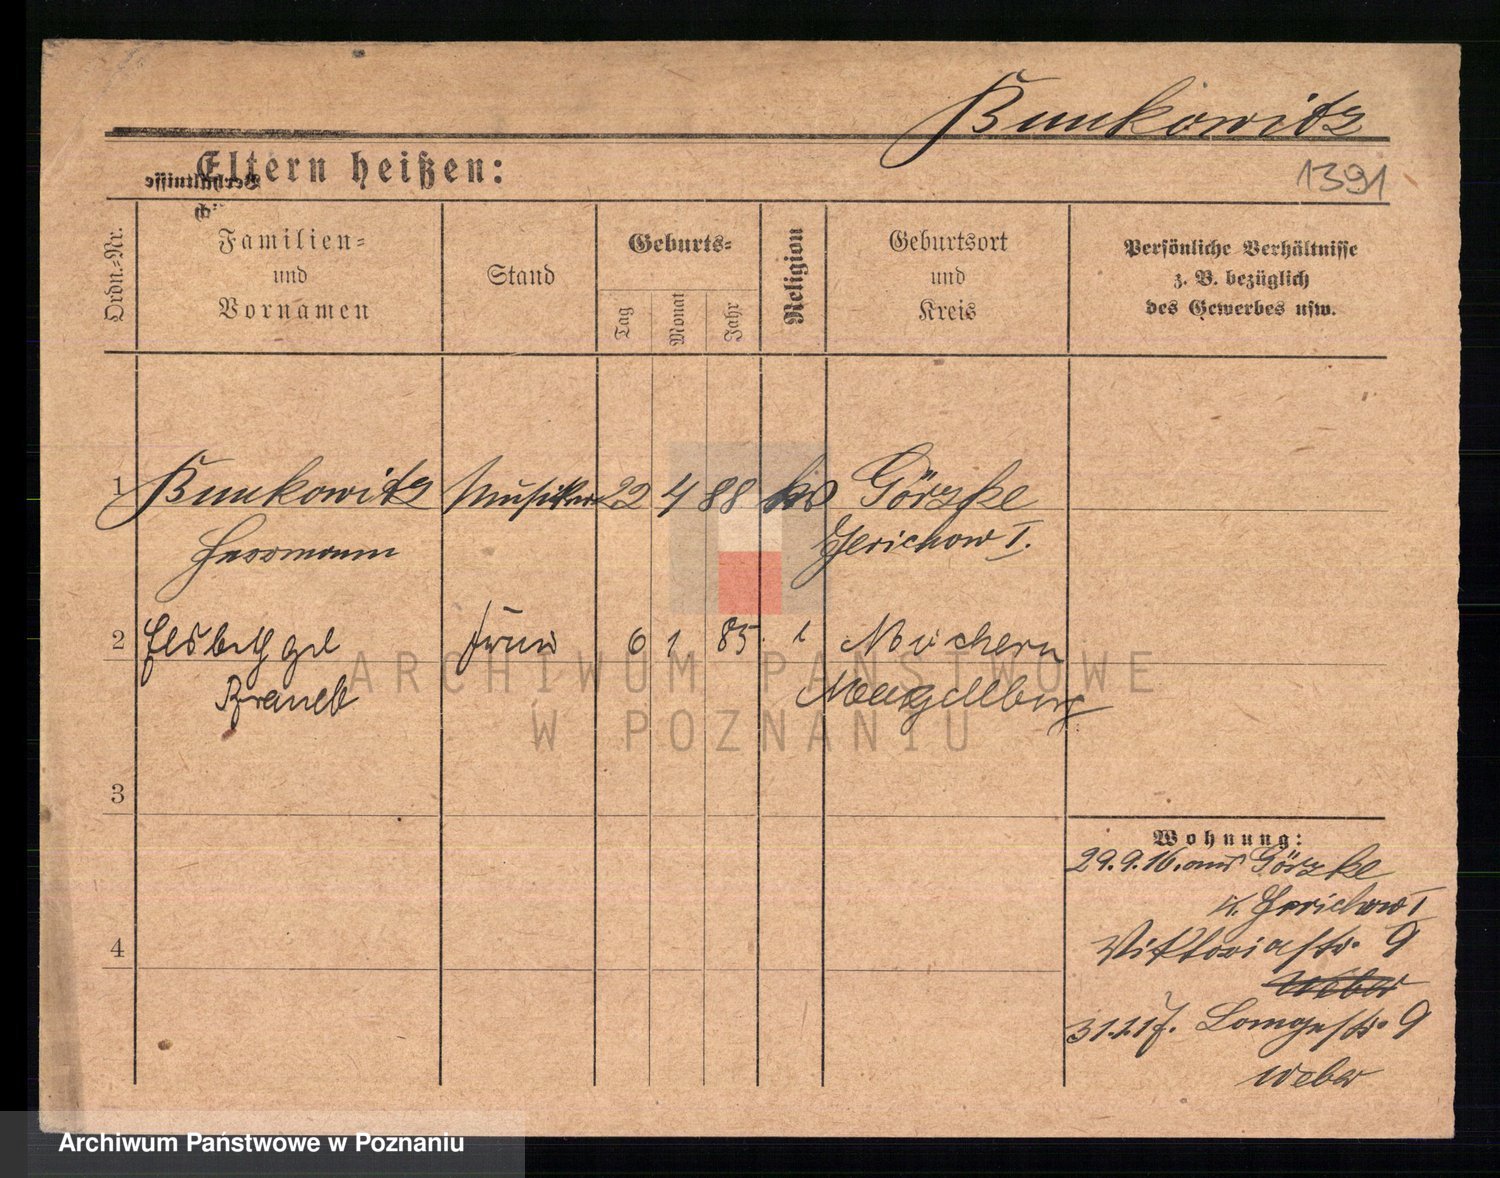 Bunkowitz
Eltern heißen:
Verhältnisse
1391
Ordn.-Nr.
Familien-
und
Vornamen
Stand
Geburts-
Tag
Monat
Jahr
Religion
Geburtsort
und
Kreis
Persönliche Verhältnisse
z. B. bezüglich
des Gewerbes usw.
1 Bunkowitz Musiker 22 4 88 Görzke
Herrmann Jerichow I.
2 Elsbeth geb Frau 6 1 85.
Magdeburg
3
4
Wohnung:
29.9.16. aus Görzke
K. Jerichow I
Viktoriastr. 9
Weber
31.1.17. Langestr. 9
Weber
ARCHIWUM PAŃSTWOWE
W POZNANIU
Archiwum Państwowe w Poznaniu